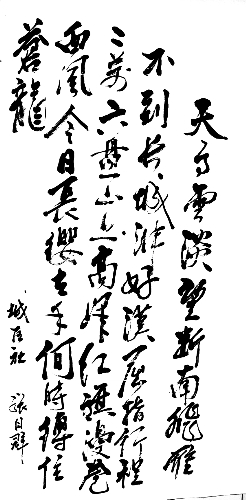 天高云淡望断南飞雁
不到长城非好汉屈指行程
二万六盘山上高峰红旗漫卷
西风今日长缨在手何时缚住
苍龙
张日群